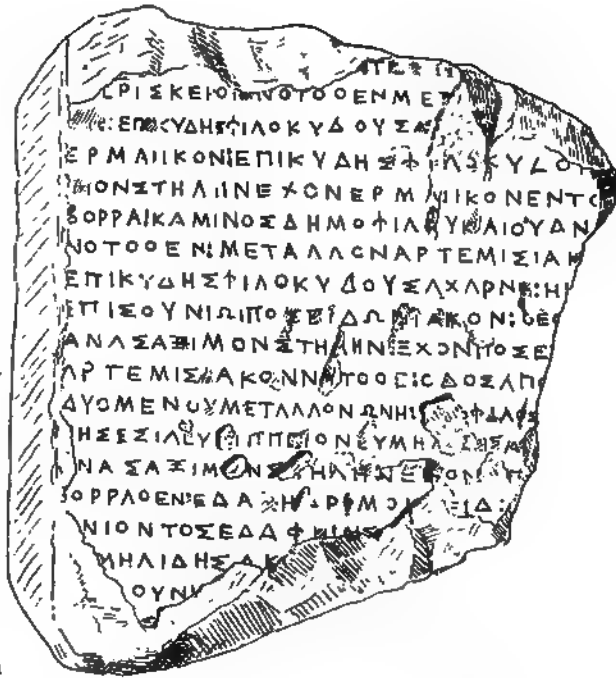 ΕΡΙΣΚΕΙΟΙ ΝΟΤΟΘΕΝΜΕΤ
:ΕΠΙΚΥΔΗΣΦΙΛΟΚΥΔΟΥΣΑ
ΕΡΜΑΙΙΚΟΝ:ΕΠΙΚΥΔΗΣΦΙΛΟΚΥΔΟ
ΙΜΟΝΣΤΗΛΗΝΕΧΟΝΕΡΜΑΙΚΟΝΕΝΤΟ
ΒΟΡΡΑΙΚΑΜΙΝΟΣΔΗΜΟΦΙΛΟΥΚΑΙΟΥΔΝ
ΝΟΤΟΘΕΝ:ΜΕΤΑΛΛΟΝΑΡΤΕΜΙΣΙΑΚ
ΕΠΙΚΥΔΗΣΦΙΛΟΚΥΔΟΥΣΑΧΑΡΝΕ:ΗΙ
ΕΠΙΣΟΥΝΙΩΙΠΟΣΕΙΔΩΝΙΑΚΟΝ:ΘΕΟ
ΑΝΑΣΑΞΙΜΟΝΣΤΗΛΗΝΕΧΟΝΠΟΣΕ
ΑΡΤΕΜΙΣΙΑΚΟΝΝΟΤΟΘΕΙΣΟΔΟΣΑΠΟ
ΔΥΟΜΕΝΟΥΜΕΤΑΛΛΟΝΩΝΗΤ ΦΙΛΟΣ
ΗΣΕΞΙΛΕΥΚΙΠΠΕΙΟΝΣΥΜΗ
ΝΑΣΑΞΙΜΟΝΣΤΗΛΗΝΕΧΟΝ
ΒΟΡΡΑΘΕΝΕΔΑΦΗ ΡΙΜΟ ΕΙΔ:
ΝΙΟΝΤΟΣΕΔΑΦ
ΜΗΛΙΔΗΣΑΚ
ΟΥΝ